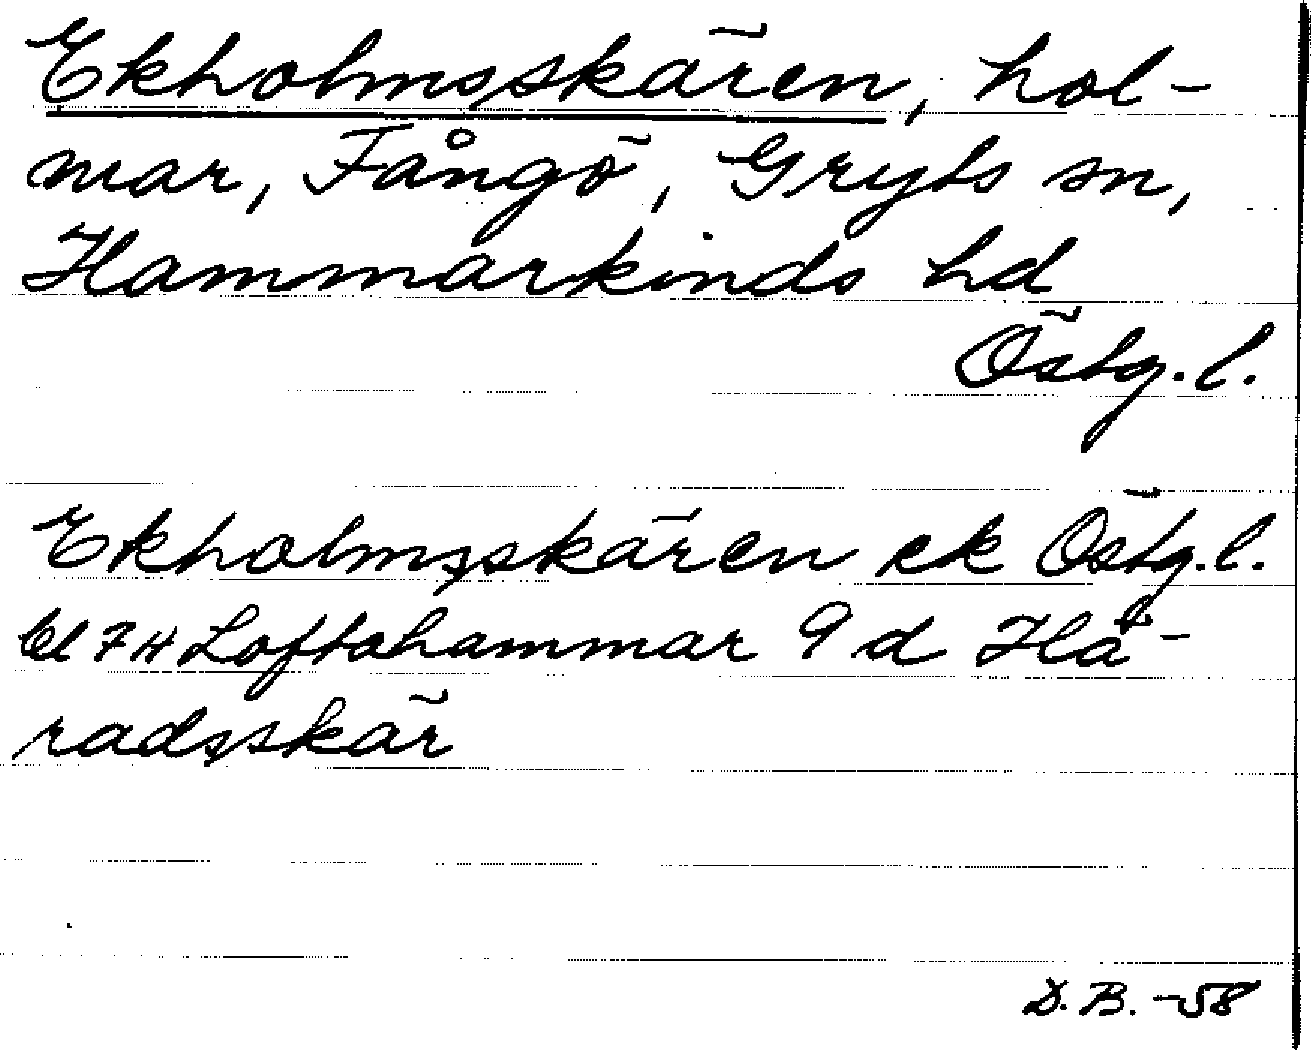 Ekholmsskären, hol-
mar, Fångö, Gryts sn,
Hammarkinds hd
Östg.l.
Ekholmsskären ek Östg.l.
bl 7H Loftahammar 9 d Hä-
radsskär
D.B. -58